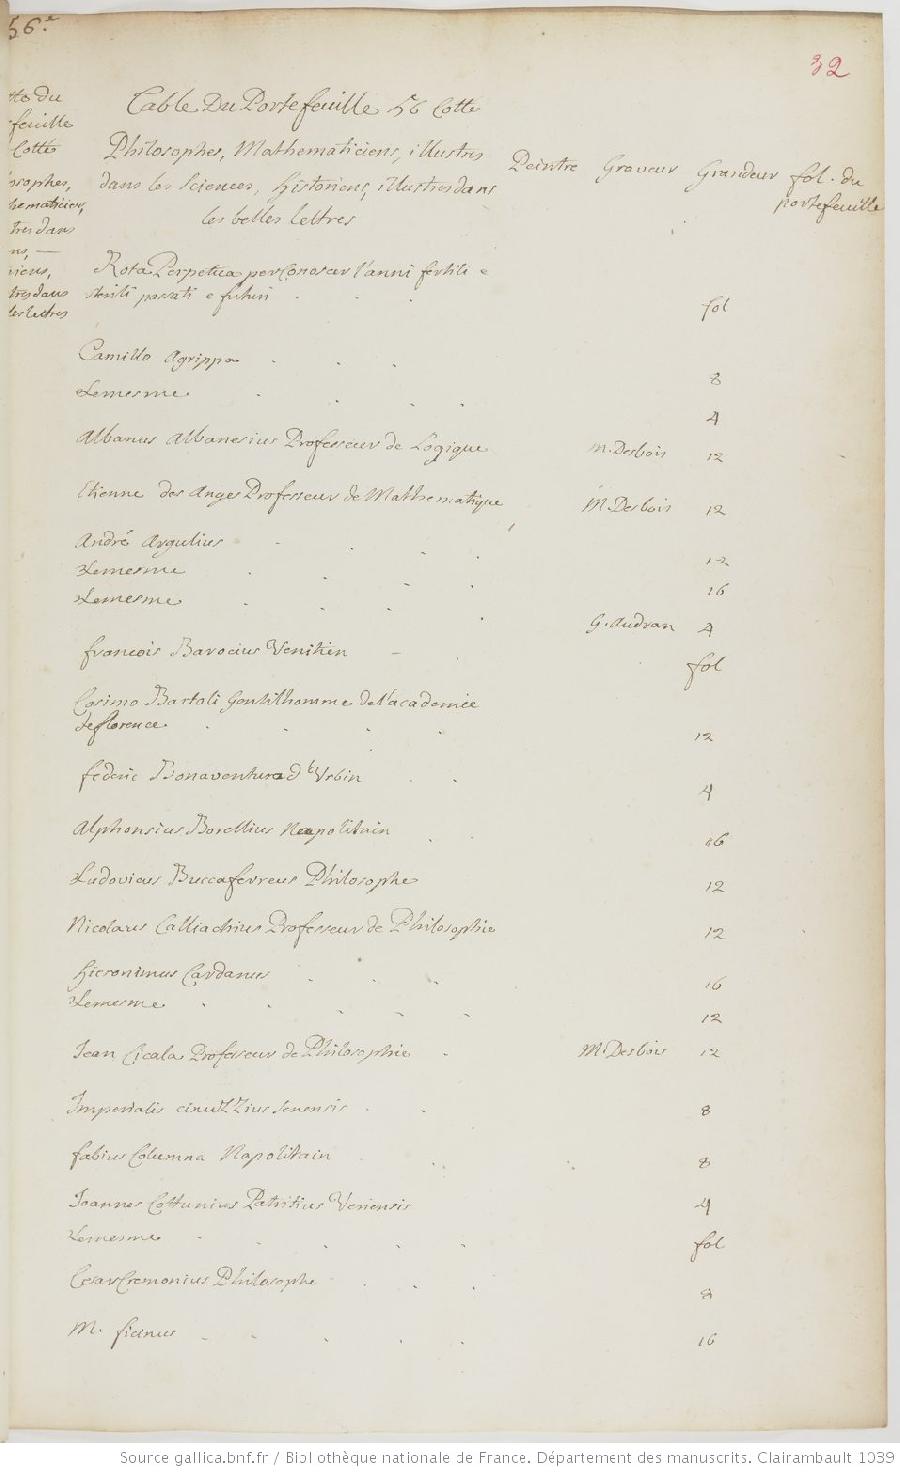 56.e
32
tte du
feuille
Cotté
osophes,
hematiciens,
tres dans
ns, —
riens,
tres dans
les lettres
Table Du Portefeuille 56 Cotté
Philosophes, Mathematiciens, illustres
dans les Sciences, historiens, illustres dans
les belles lettres
Peintre Graveur Grandeur fol. du
portefeuille
Rota Perpetua per Conoscer l'anni fertili e
sterili passati e futuri
fol
Camillo Agrippa 8
Lemesme 4
Albanus Albanesius Professeur de Logique M. Desbois 12
Etienne des Anges Professeur de Mathematique M. Desbois 12
André Argulius 12
Lemesme 16
Lemesme G. Audran 4
françois Barocius Venitien fol
Cosimo Bartoli Gentilhomme de l'academie
de florence 12
féderic Bonaventura d'Urbin 4
Alphonsius Borellius Neapolitain 16
Ludovicus Buccaferreus Philosophe 12
Nicolaus Calliachius Professeur de Philosophie 12
Hieronimus Cardanus 16
Lemesme 12
Jean Cicala Professeur de Philosophie M. Desbois 12
Imperialis cinuzzius Senensis 8
fabius Columna Napolitain 8
Joannes Cottunius Patritius Veriensis 4
Lemesme fol
Cesar Cremonius Philosophe 8
M. ficinus 16
Source gallica.bnf.fr / Bibliothèque nationale de France. Département des manuscrits. Clairambault 1039